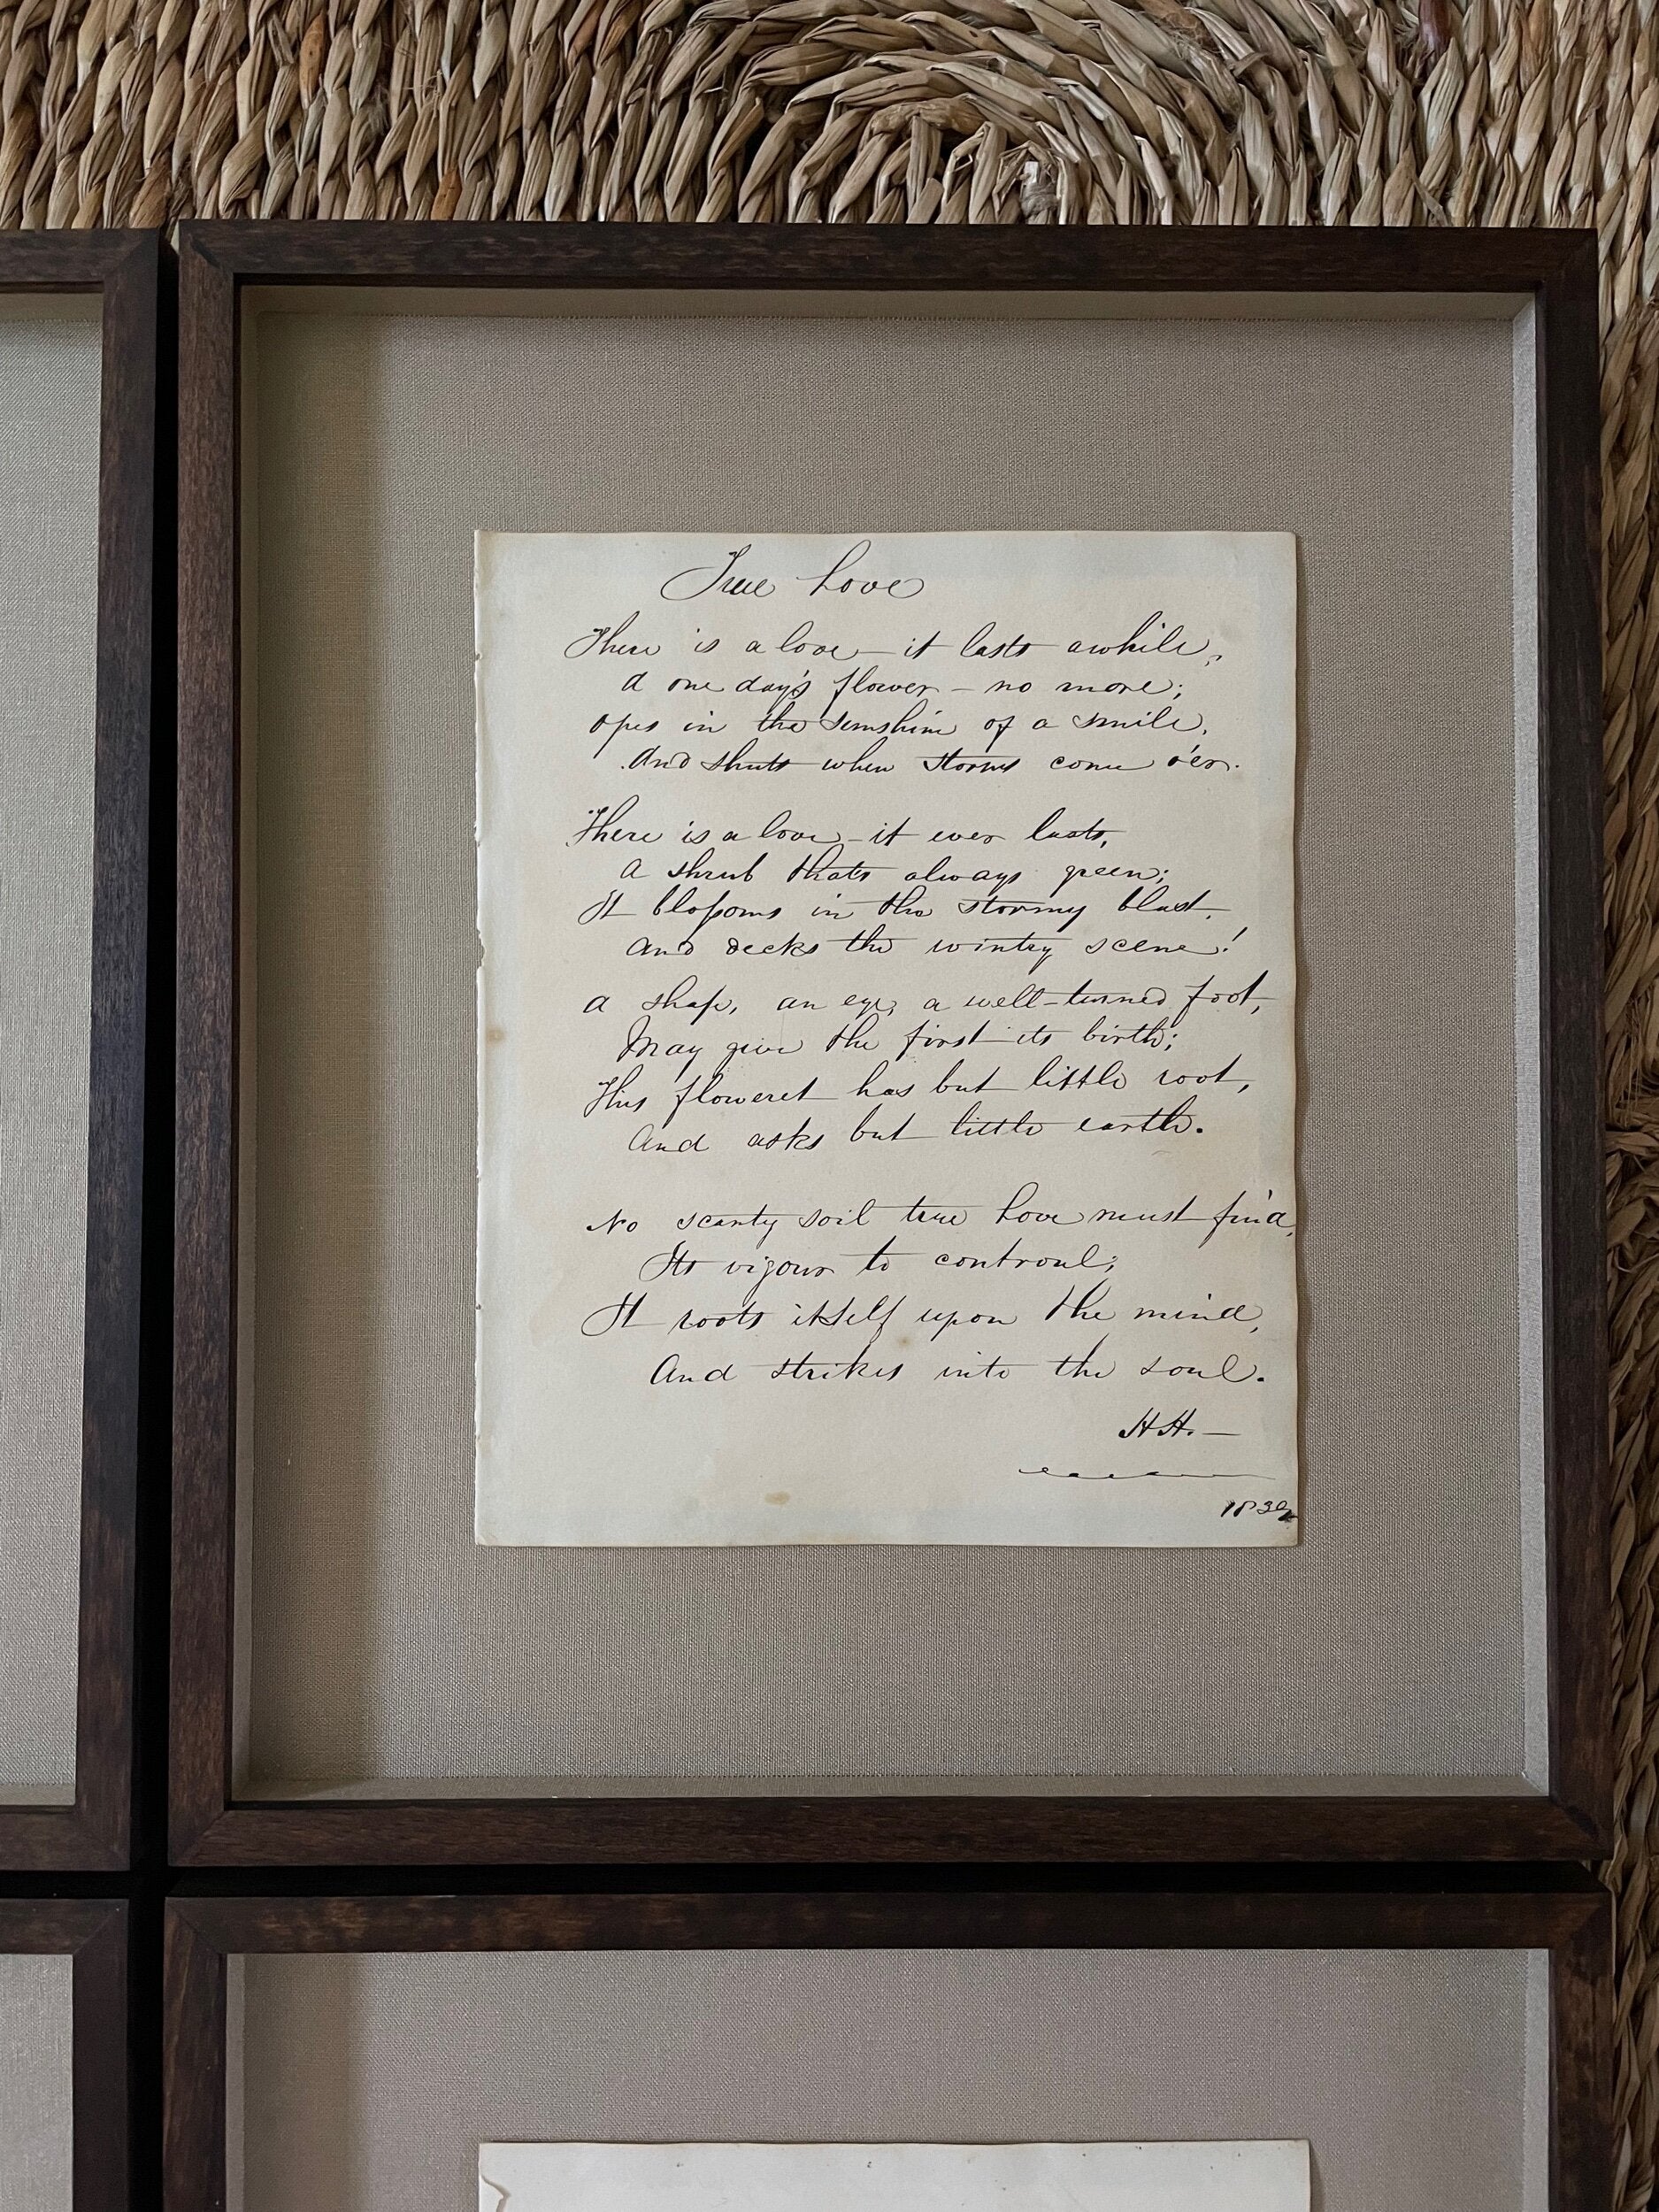 True Love
There is a love – it lasts awhile,
A one day's flower – no more;
Opes in the sunshine of a smile,
And shuts when storms come o'er.
There is a love – it ever lasts,
A shrub thats always green;
It blossoms in the stormy blast,
And decks the wintry scene!
A shape, an eye, a well-turned foot,
May give the first its birth;
This floweret has but little root,
And asks but little earth.
No scanty soil true Love must find,
Its vigour to controul;
It roots itself upon the mind,
And strikes into the soul.
H H. –